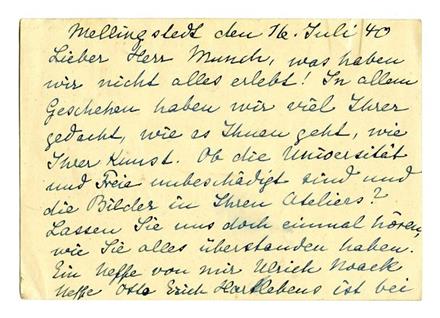 Mellingstedt den 16. Juli 40
Lieber Herr Munch, was haben
wir nicht alles erlebt! In allem
Geschehen haben wir viel Ihrer
gedacht, wie es Ihnen geht, wie
Ihrer Kunst. Ob die Universität
und Freia unbeschädigt sind und
die Bilder in Ihren Ateliers?
Lassen Sie uns doch einmal hören,
wie Sie alles überstanden haben.
Ein Neffe von mir Ulrich Noack
Neffe Otto Erich Hartlebens ist bei